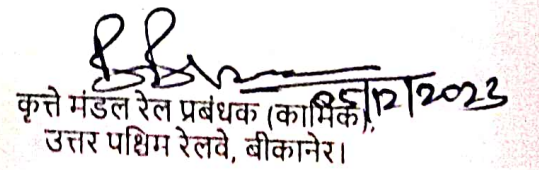 05/12/2023
कृत्ते मंडल रेल प्रबंधक (कार्मिक),
उत्तर पश्चिम रेलवे, बीकानेर।